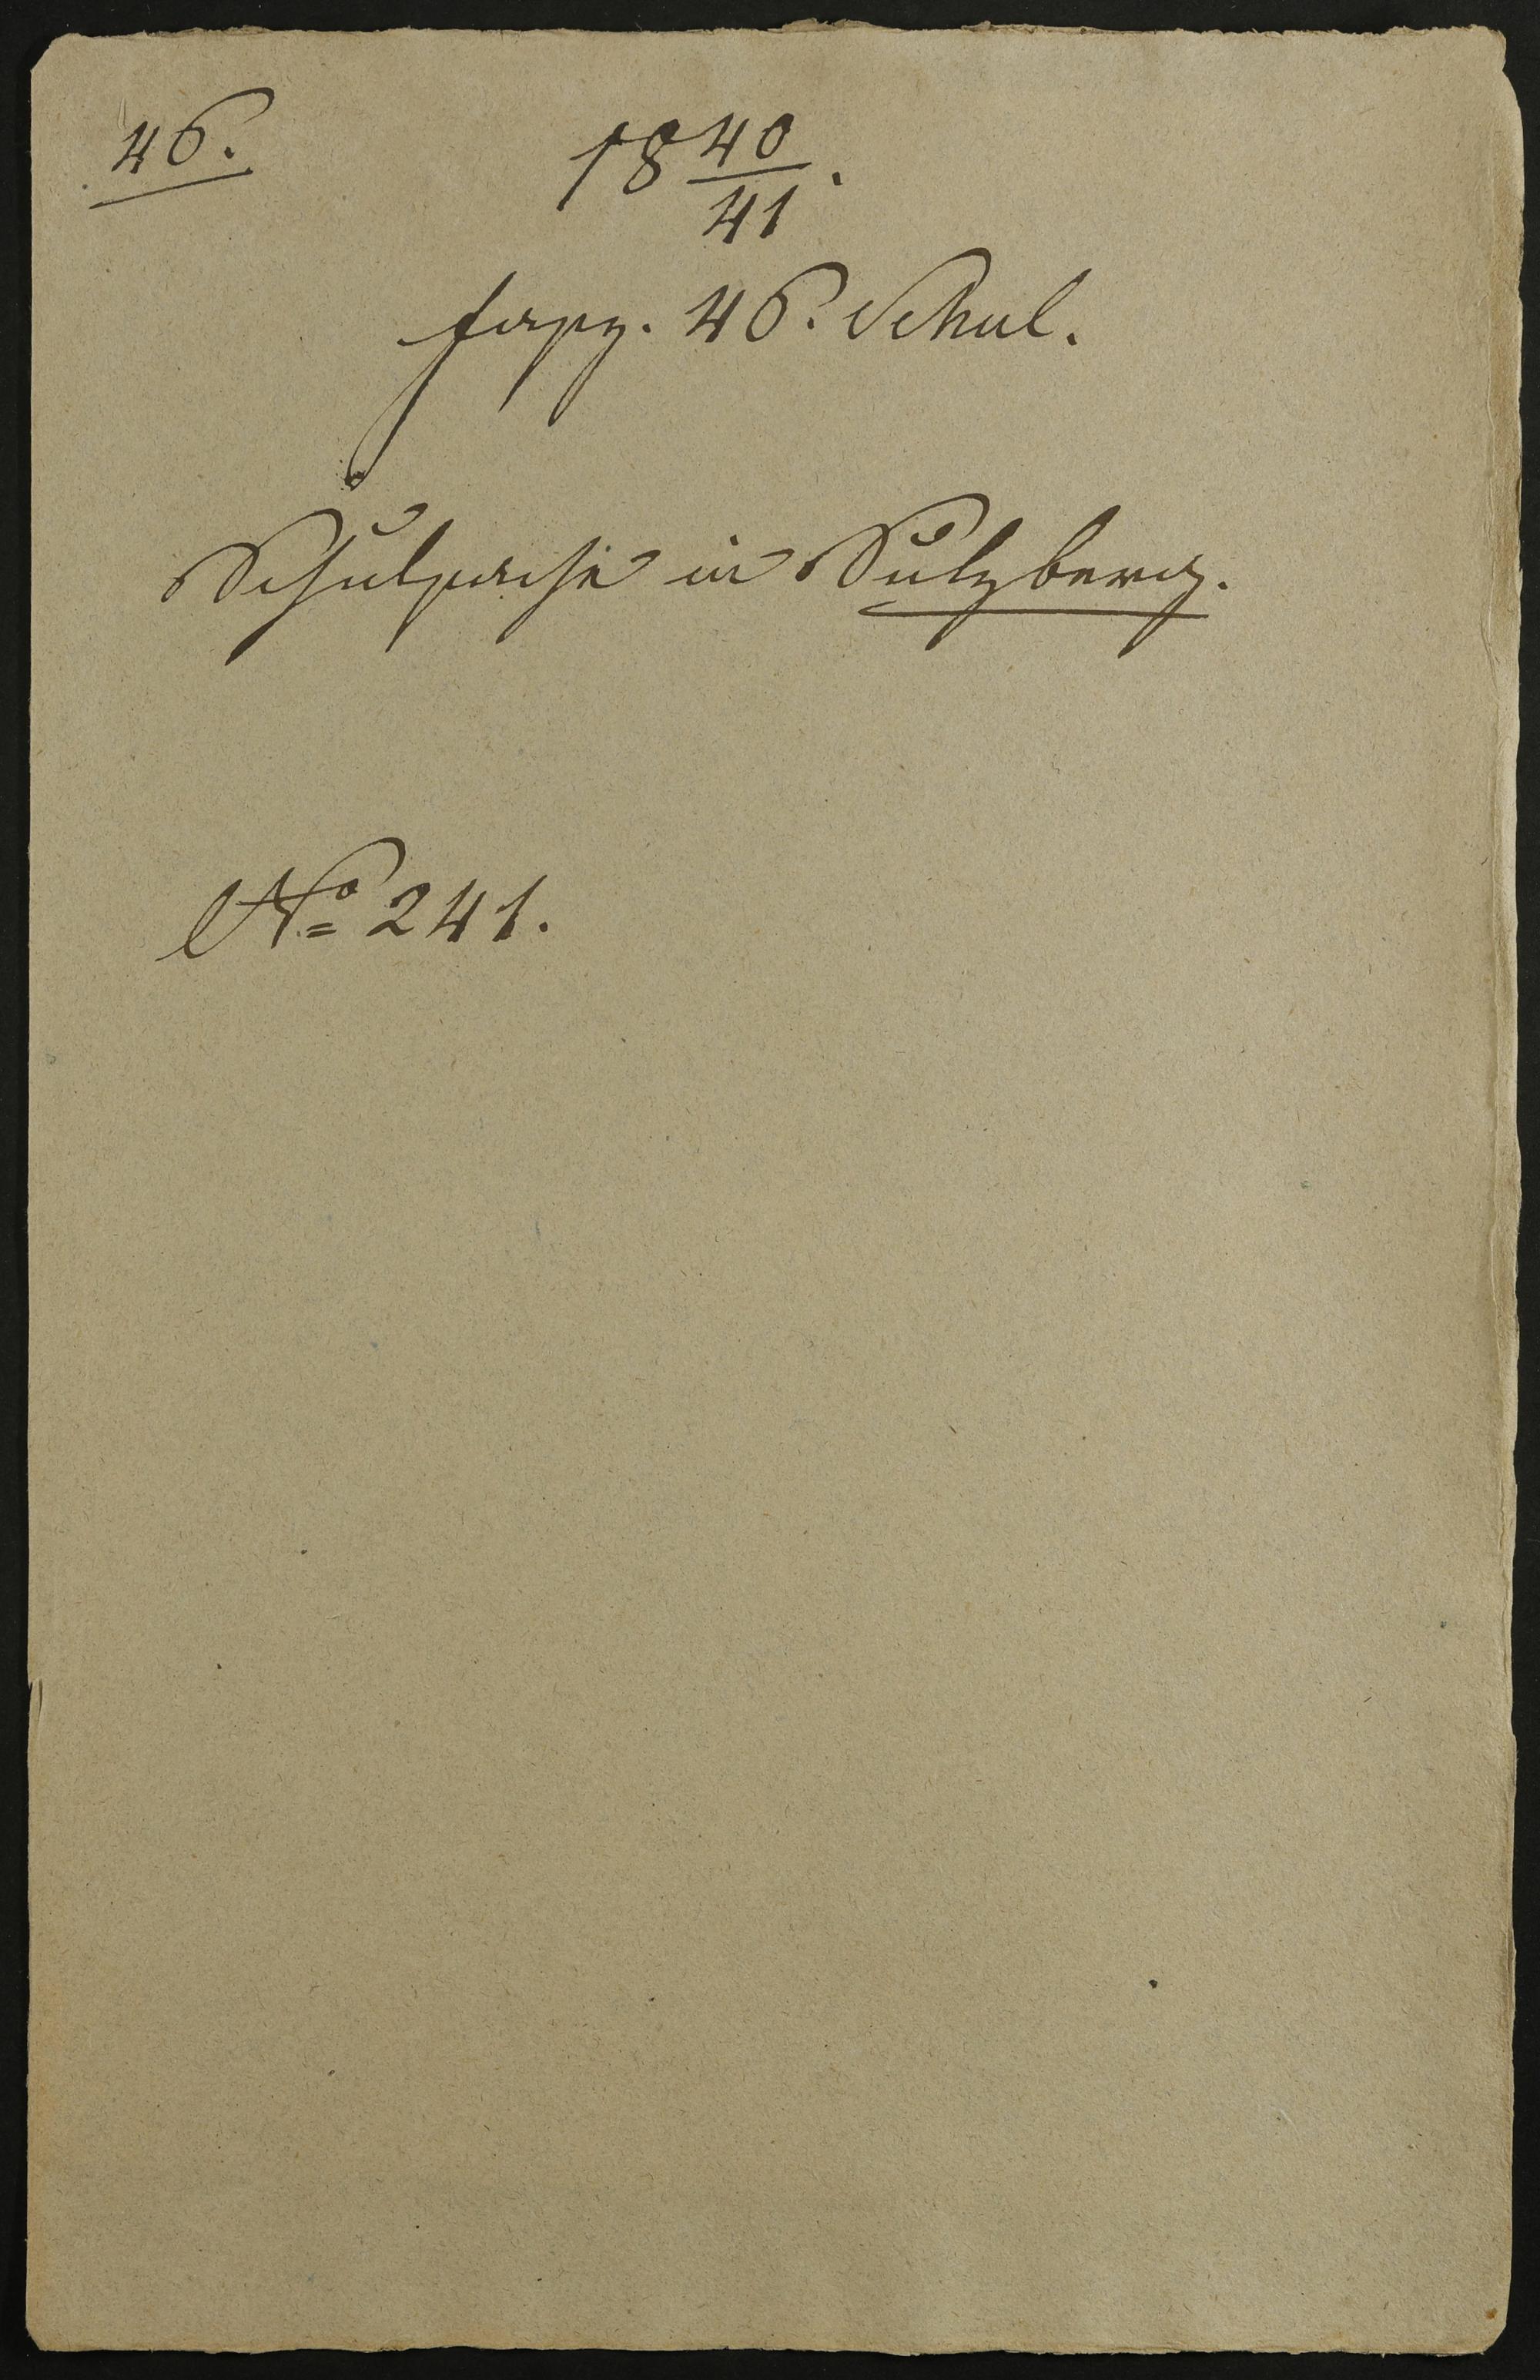 46.
18 40/41.
fasz. 46. Schul.
Schulsache in Sulzberg.
No 241.